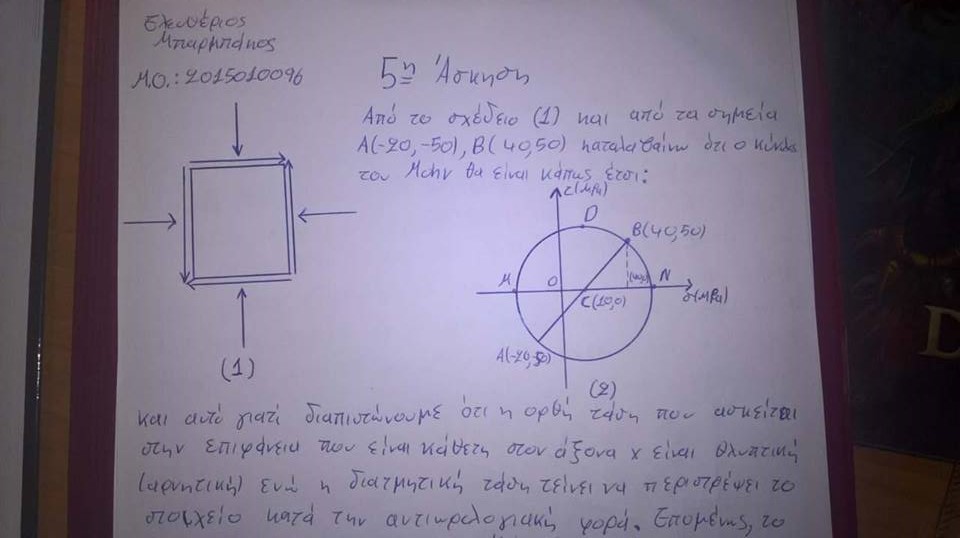 Ελευθέριος
Μπαρμπάκος
Μ.Ο.: 2015010096
5η Άσκηση
Από το σχέδειο (1) και από τα σημεία
Α(-20,-50), Β(40,50) καταλαβαίνω ότι ο κύκλος
του Mohr θα είναι κάπως έτσι:
τ(MPa)
D
B(40,50)
M
O
(40,0)
N
C(10,0)
σ(MPa)
A(-20,-50)
(1)
(2)
και αυτό γιατί διαπιστώνουμε ότι η ορθή τάση που ασκείται
στην επιφάνεια που είναι κάθετη στον άξονα x είναι θλιπτική
(αρνητική) ενώ η διατμητική τάση τείνει να περιστρέψει το
στοιχείο κατά την αντιωρολογιακή φορά. Επομένως, το